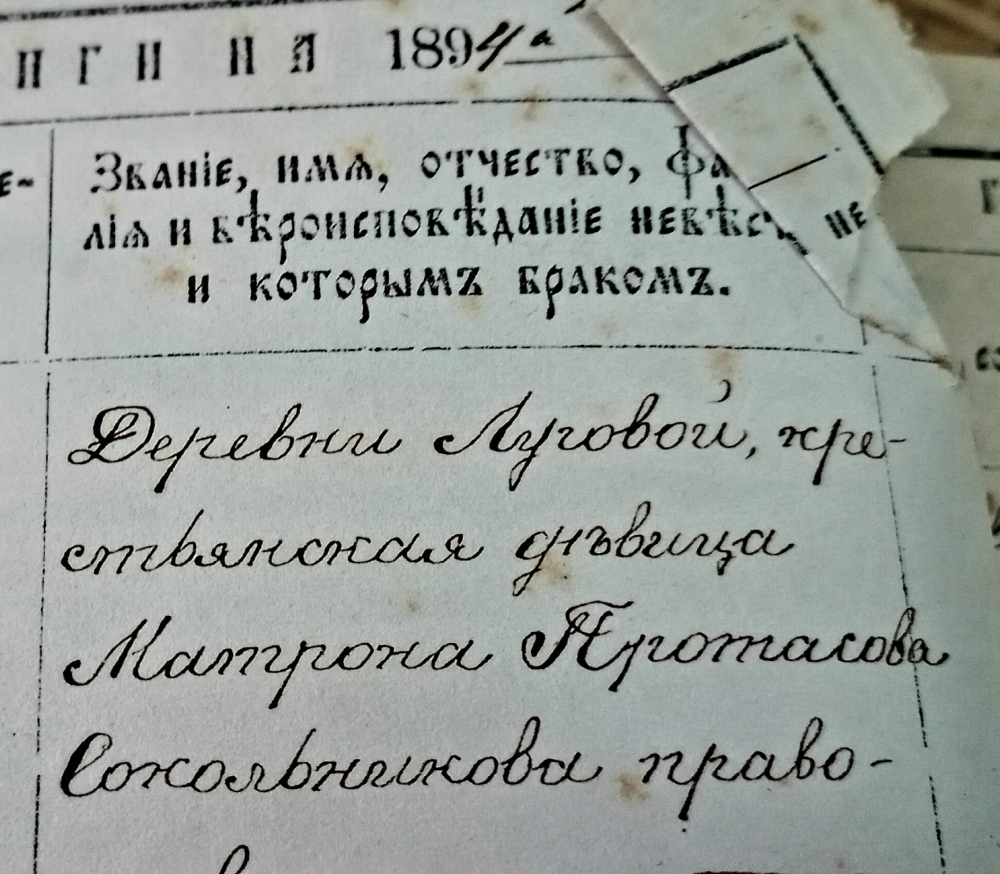 НГИ НА 1894 а
Званіе, имя, отчество, фа
лія и вѣроисповѣданіе невѣс НЕ
и которымъ бракомъ.
Деревни Луговой, кре-
стьянская дѣвица
Матрона Протасова
Сокольникова право-